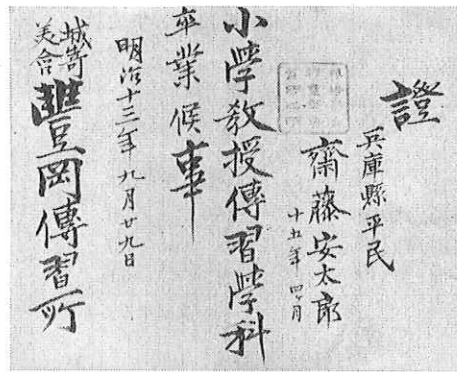 證
兵庫縣平民
齋藤安太郎
十五年四ヶ月
小學教授傳習學科
卒業候事
明治十三年九月廿九日
城崎
美含
豐岡傳習所